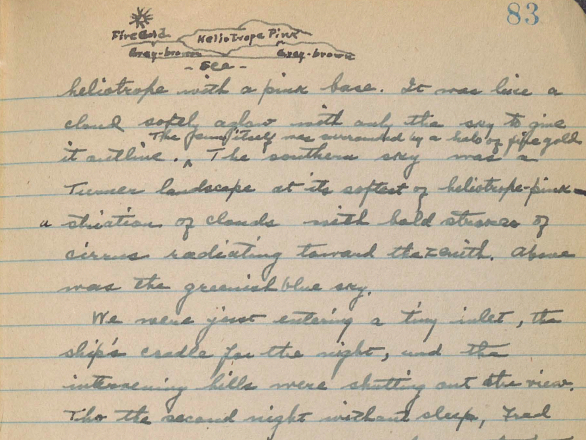 83
Fire Gold Heliotrope Pink
Grey-brown Grey-brown
- See -
heliotrope with a pink base. It was like a
cloud softly aglow with only the sky to give
The itself was surrounded by a halo of fire gold
it outline. ^ The southern sky was a
Turner landscape at its softest of heliotrope-pink -
a striation of clouds with bold strokes of
cirrus radiating toward the zenith. Above
was the greenish blue sky.
We were just entering a tiny inlet, the
ship's cradle for the night, and the
intervening hills were shutting out the view.
Tho the second night without sleep, Fred